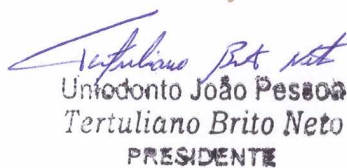 Tertuliano Brito Neto
Uniodonto João Pessoa
Tertuliano Brito Neto
PRESIDENTE